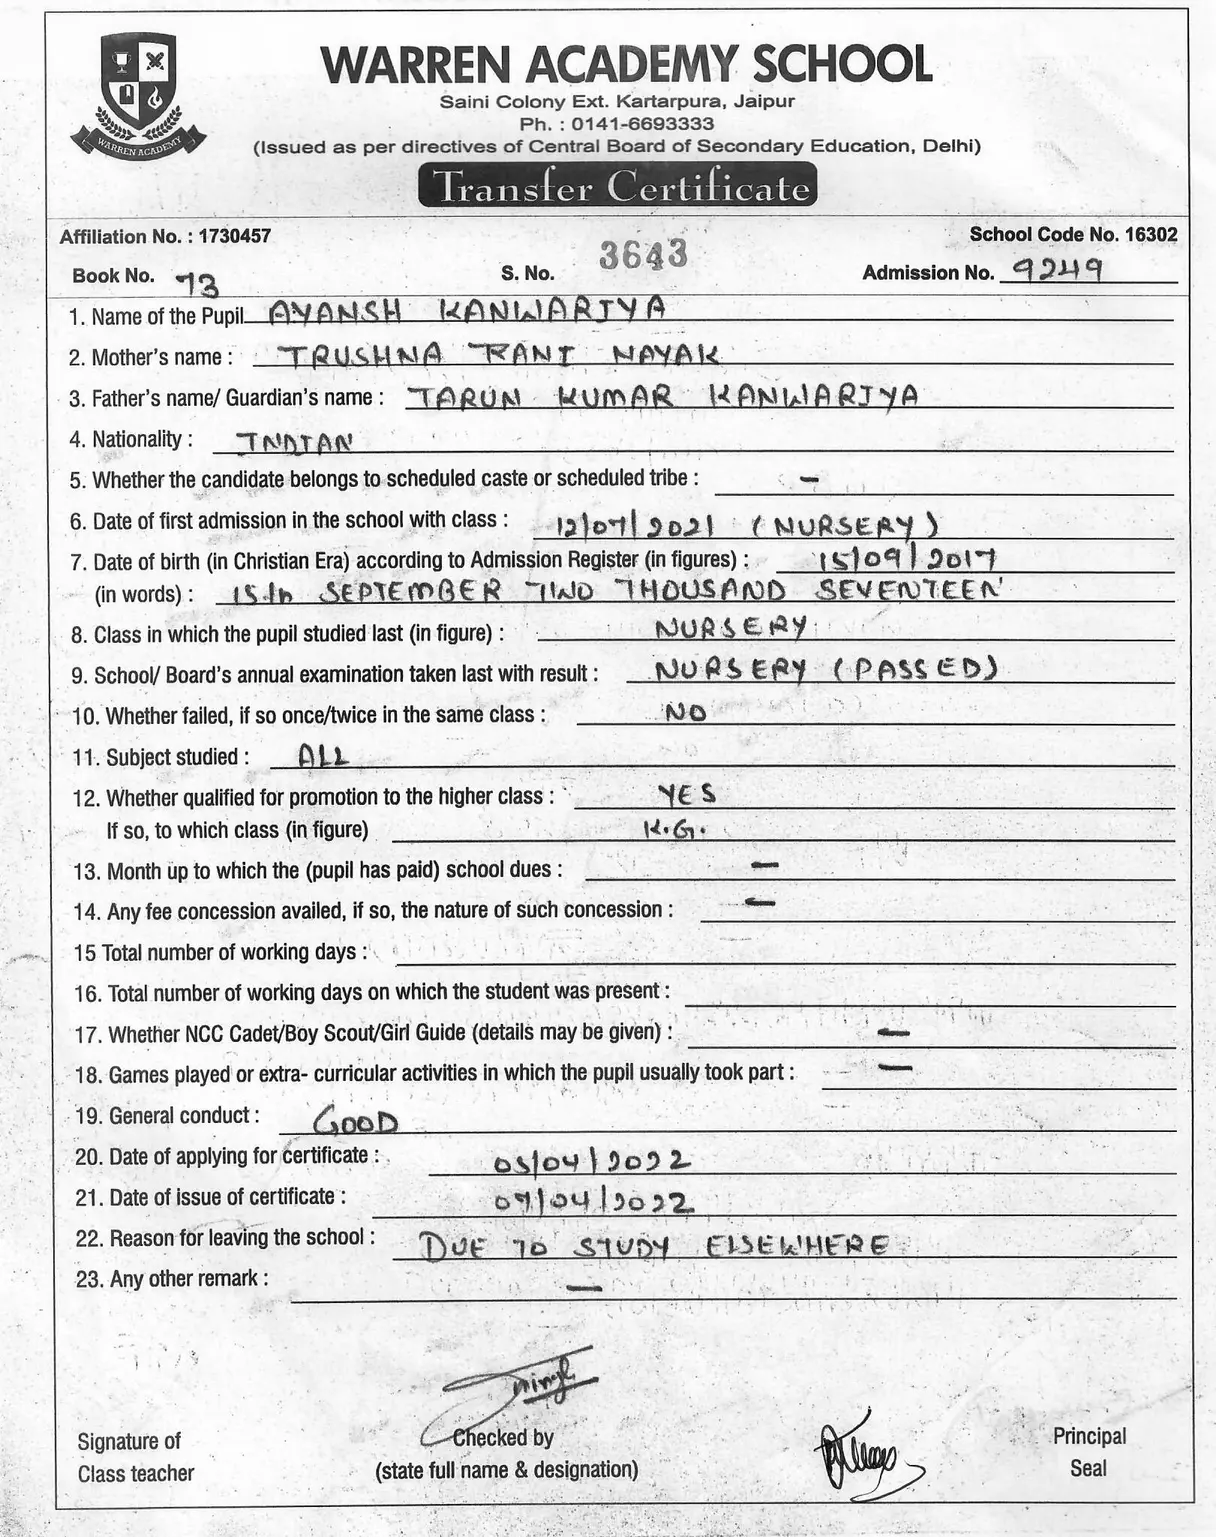 WARREN ACADEMY
WARREN ACADEMY SCHOOL
Saini Colony Ext. Kartarpura, Jaipur
Ph. : 0141-6693333
(Issued as per directives of Central Board of Secondary Education, Delhi)
Transfer Certificate
Affiliation No. : 1730457 School Code No. 16302
Book No. 73 S. No. 3643 Admission No. 9249
1. Name of the Pupil AYANSH KANWARIYA
2. Mother's name : TRUSHNA RANI NAYAK
3. Father's name/ Guardian's name : TARUN KUMAR KANWARIYA
4. Nationality : INDIAN
5. Whether the candidate belongs to scheduled caste or scheduled tribe : –
6. Date of first admission in the school with class : 12/07/2021 (NURSERY)
7. Date of birth (in Christian Era) according to Admission Register (in figures) : 15/09/2017
(in words) : 15th SEPTEMBER TWO THOUSAND SEVENTEEN
8. Class in which the pupil studied last (in figure) : NURSERY
9. School/ Board's annual examination taken last with result : NURSERY (PASSED)
10. Whether failed, if so once/twice in the same class : NO
11. Subject studied : ALL
12. Whether qualified for promotion to the higher class : YES
If so, to which class (in figure) K.G.
13. Month up to which the (pupil has paid) school dues : –
14. Any fee concession availed, if so, the nature of such concession : –
15 Total number of working days :
16. Total number of working days on which the student was present :
17. Whether NCC Cadet/Boy Scout/Girl Guide (details may be given) : –
18. Games played or extra- curricular activities in which the pupil usually took part : –
19. General conduct : GOOD
20. Date of applying for certificate : 05/04/2022
21. Date of issue of certificate : 07/04/2022
22. Reason for leaving the school : DUE TO STUDY ELSEWHERE
23. Any other remark : –
Signature of Checked by Principal
Class teacher (state full name & designation) Seal